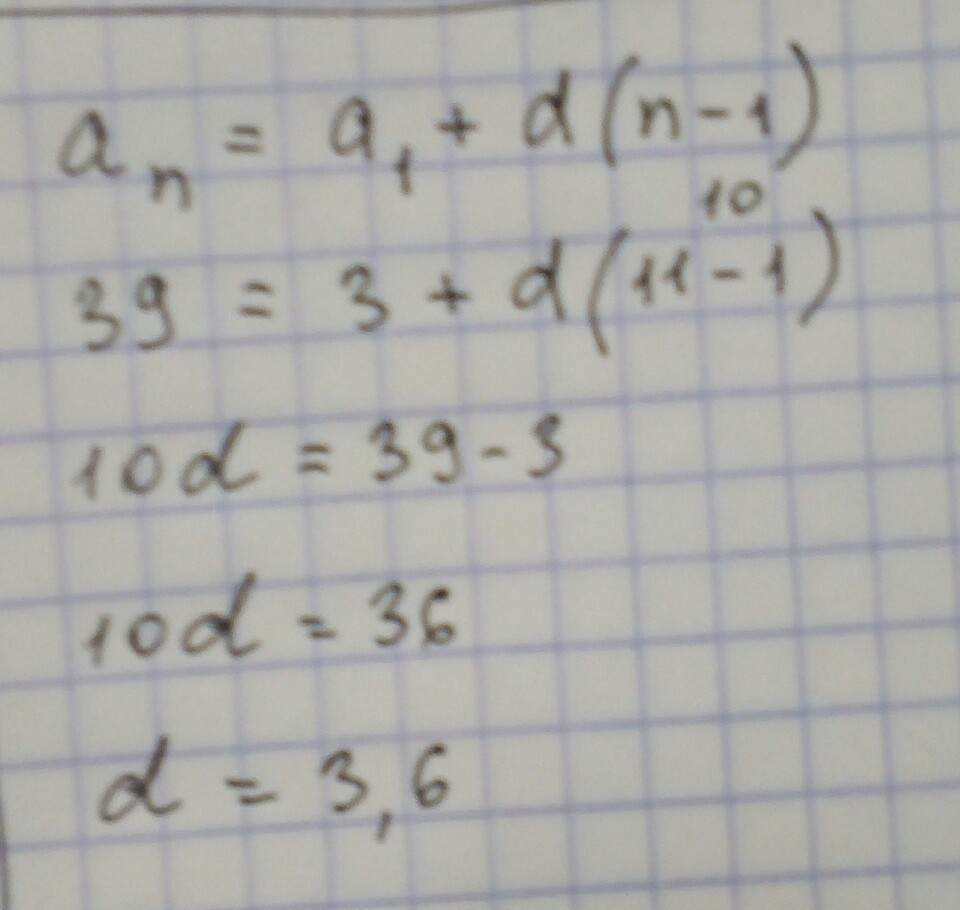 aₙ = a₁ + d(n-1)
10
39 = 3 + d(11-1)
10d = 39-3
10d = 36
d = 3,6